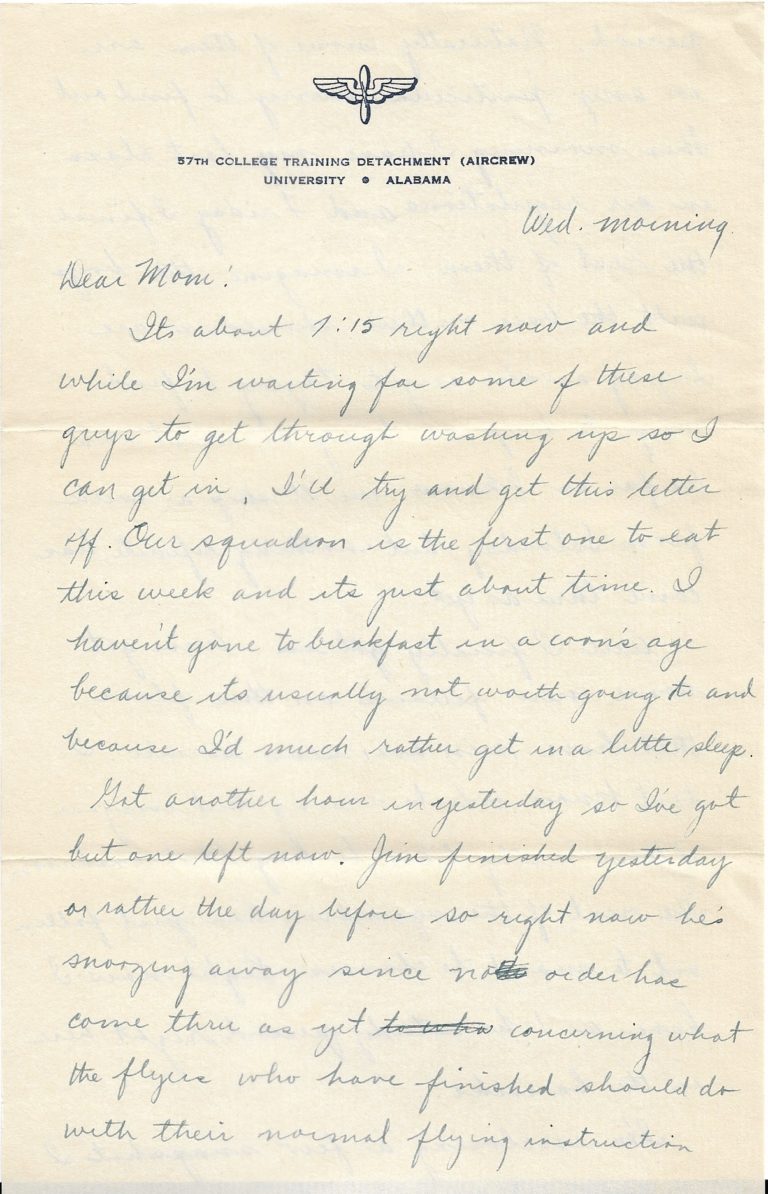 57TH COLLEGE TRAINING DETACHMENT (AIRCREW)
UNIVERSITY • ALABAMA
Wed. morning.
Dear Mom!
Its about 7:15 right now and
while I'm waiting for some of these
guys to get through washing up so I
can get in, I'll try and get this letter
off. Our squadron is the first one to eat
this week and its just about time. I
haven't gone to breakfast in a coon's age
because its usually not worth going to and
because I'd much rather get in a little sleep.
Got another hour in yesterday so I've got
but one left now. Jim finished yesterday
or rather the day before so right now he's
snoozing away since no order has
come thru as yet to who concerning what
the flyers who have finished should do
with their normal flying instruction